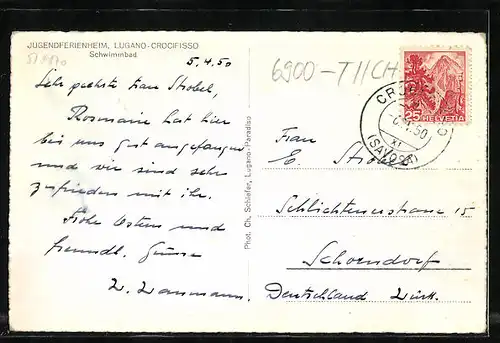 JUGENDFERIENHEIM, LUGANO-CROCIFISSO
Schwimmbad
5.4.50
6900-TI/CH
Sehr geehrte Frau Strobel,
Rosmarie hat hier
bei uns gut angefangen
und wir sind sehr
zufrieden mit ihr.
Frohe Ostern und
freundl. Grüsse
Phot. Ch. Schiefer, Lugano-Paradiso
25
HELVETIA
(SAVOSA)
Frau
E. Strobel
Schlichtenerstrasse 15
Schorndorf
Deutschland Württ.